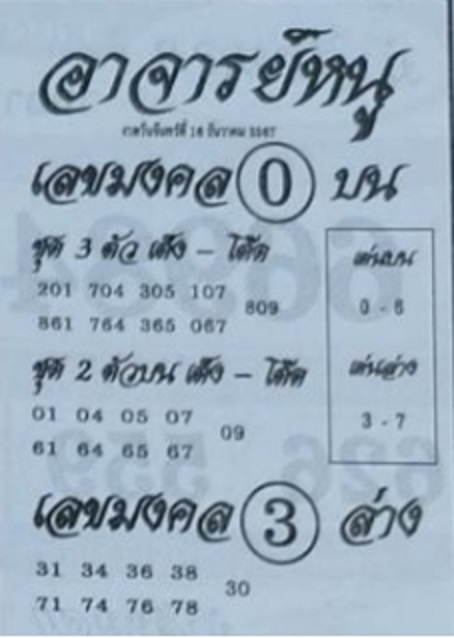 อาจารย์หนู
งวดวันจันทร์ที่ 16 ธันวาคม 2567
เลขมงคล 0 บน
ชุด 3 ตัว เต็ง - โต๊ด
201 704 305 107
809
861 764 365 067
เด่นบน
0 - 6
ชุด 2 ตัวบน เต็ง - โต๊ด
01 04 05 07
09
61 64 65 67
เด่นล่าง
3 - 7
เลขมงคล 3 ล่าง
31 34 36 38
30
71 74 76 78